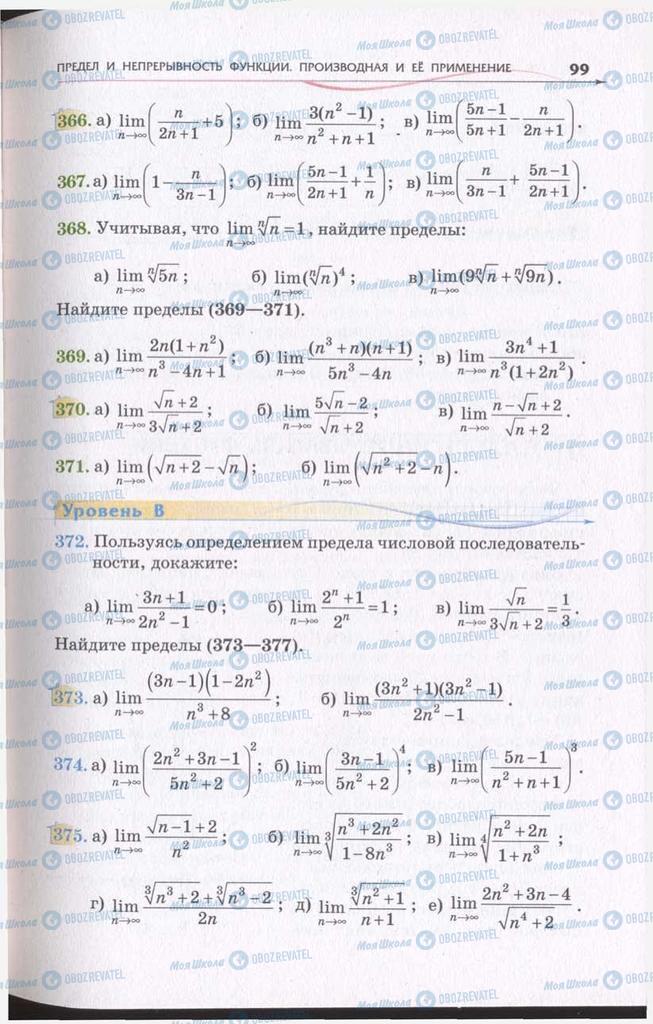 ПРЕДЕЛ И НЕПРЕРЫВНОСТЬ ФУНКЦИИ. ПРОИЗВОДНАЯ И ЕЁ ПРИМЕНЕНИЕ 99
366. а) lim_{n→∞} (n/(2n+1) + 5); б) lim_{n→∞} 3(n² − 1)/(n² + n + 1); в) lim_{n→∞} ((5n − 1)/(5n + 1) − n/(2n + 1)).
367. а) lim_{n→∞} (1 − n/(3n − 1)); б) lim_{n→∞} ((5n − 1)/(2n + 1) + 1/n); в) lim_{n→∞} (n/(3n − 1) + (5n − 1)/(2n + 1)).
368. Учитывая, что lim_{n→∞} ⁿ√n = 1, найдите пределы:
а) lim_{n→∞} ⁿ√(5n); б) lim_{n→∞} (ⁿ√n)⁴; в) lim_{n→∞} (9ⁿ√n + ⁿ√(9n)).
Найдите пределы (369—371).
369. а) lim_{n→∞} 2n(1 + n²)/(n³ − 4n + 1); б) lim_{n→∞} (n³ + n)(n + 1)/(5n³ − 4n); в) lim_{n→∞} (3n⁴ + 1)/(n³(1 + 2n³)).
370. а) lim_{n→∞} (√n + 2)/(3√n + 2); б) lim_{n→∞} (5√n − 2)/(√n + 2); в) lim_{n→∞} (n − √n + 2)/(√n + 2).
371. а) lim_{n→∞} (√(n + 2) − √n); б) lim_{n→∞} (√(n² + 2) − n).
Уровень В
372. Пользуясь определением предела числовой последователь-
ности, докажите:
а) lim_{n→∞} (3n + 1)/(2n² − 1) = 0; б) lim_{n→∞} (2ⁿ + 1)/2ⁿ = 1; в) lim_{n→∞} √n/(3√n + 2) = 1/3.
Найдите пределы (373—377).
373. а) lim_{n→∞} (3n − 1)(1 − 2n²)/(n³ + 8); б) lim_{n→∞} (3n² + 1)(3n² − 1)/(2n² − 1).
374. а) lim_{n→∞} ((2n² + 3n − 1)/(5n² + 2))²; б) lim_{n→∞} ((3n − 1)/(5n² + 2))⁴; в) lim_{n→∞} ((5n − 1)/(n² + n + 1))³.
375. а) lim_{n→∞} (√(n − 1) + 2)/n²; б) lim_{n→∞} ³√((n³ + 2n²)/(1 − 8n³)); в) lim_{n→∞} ⁴√((n² + 2n)/(1 + n³));
г) lim_{n→∞} (³√(n³ + 2) + ³√(n³ − 2))/(2n); д) lim_{n→∞} ³√(n² + 1)/(n + 1); е) lim_{n→∞} (2n² + 3n − 4)/√(n⁴ + 2).
МояШкола OBOZREVATEL